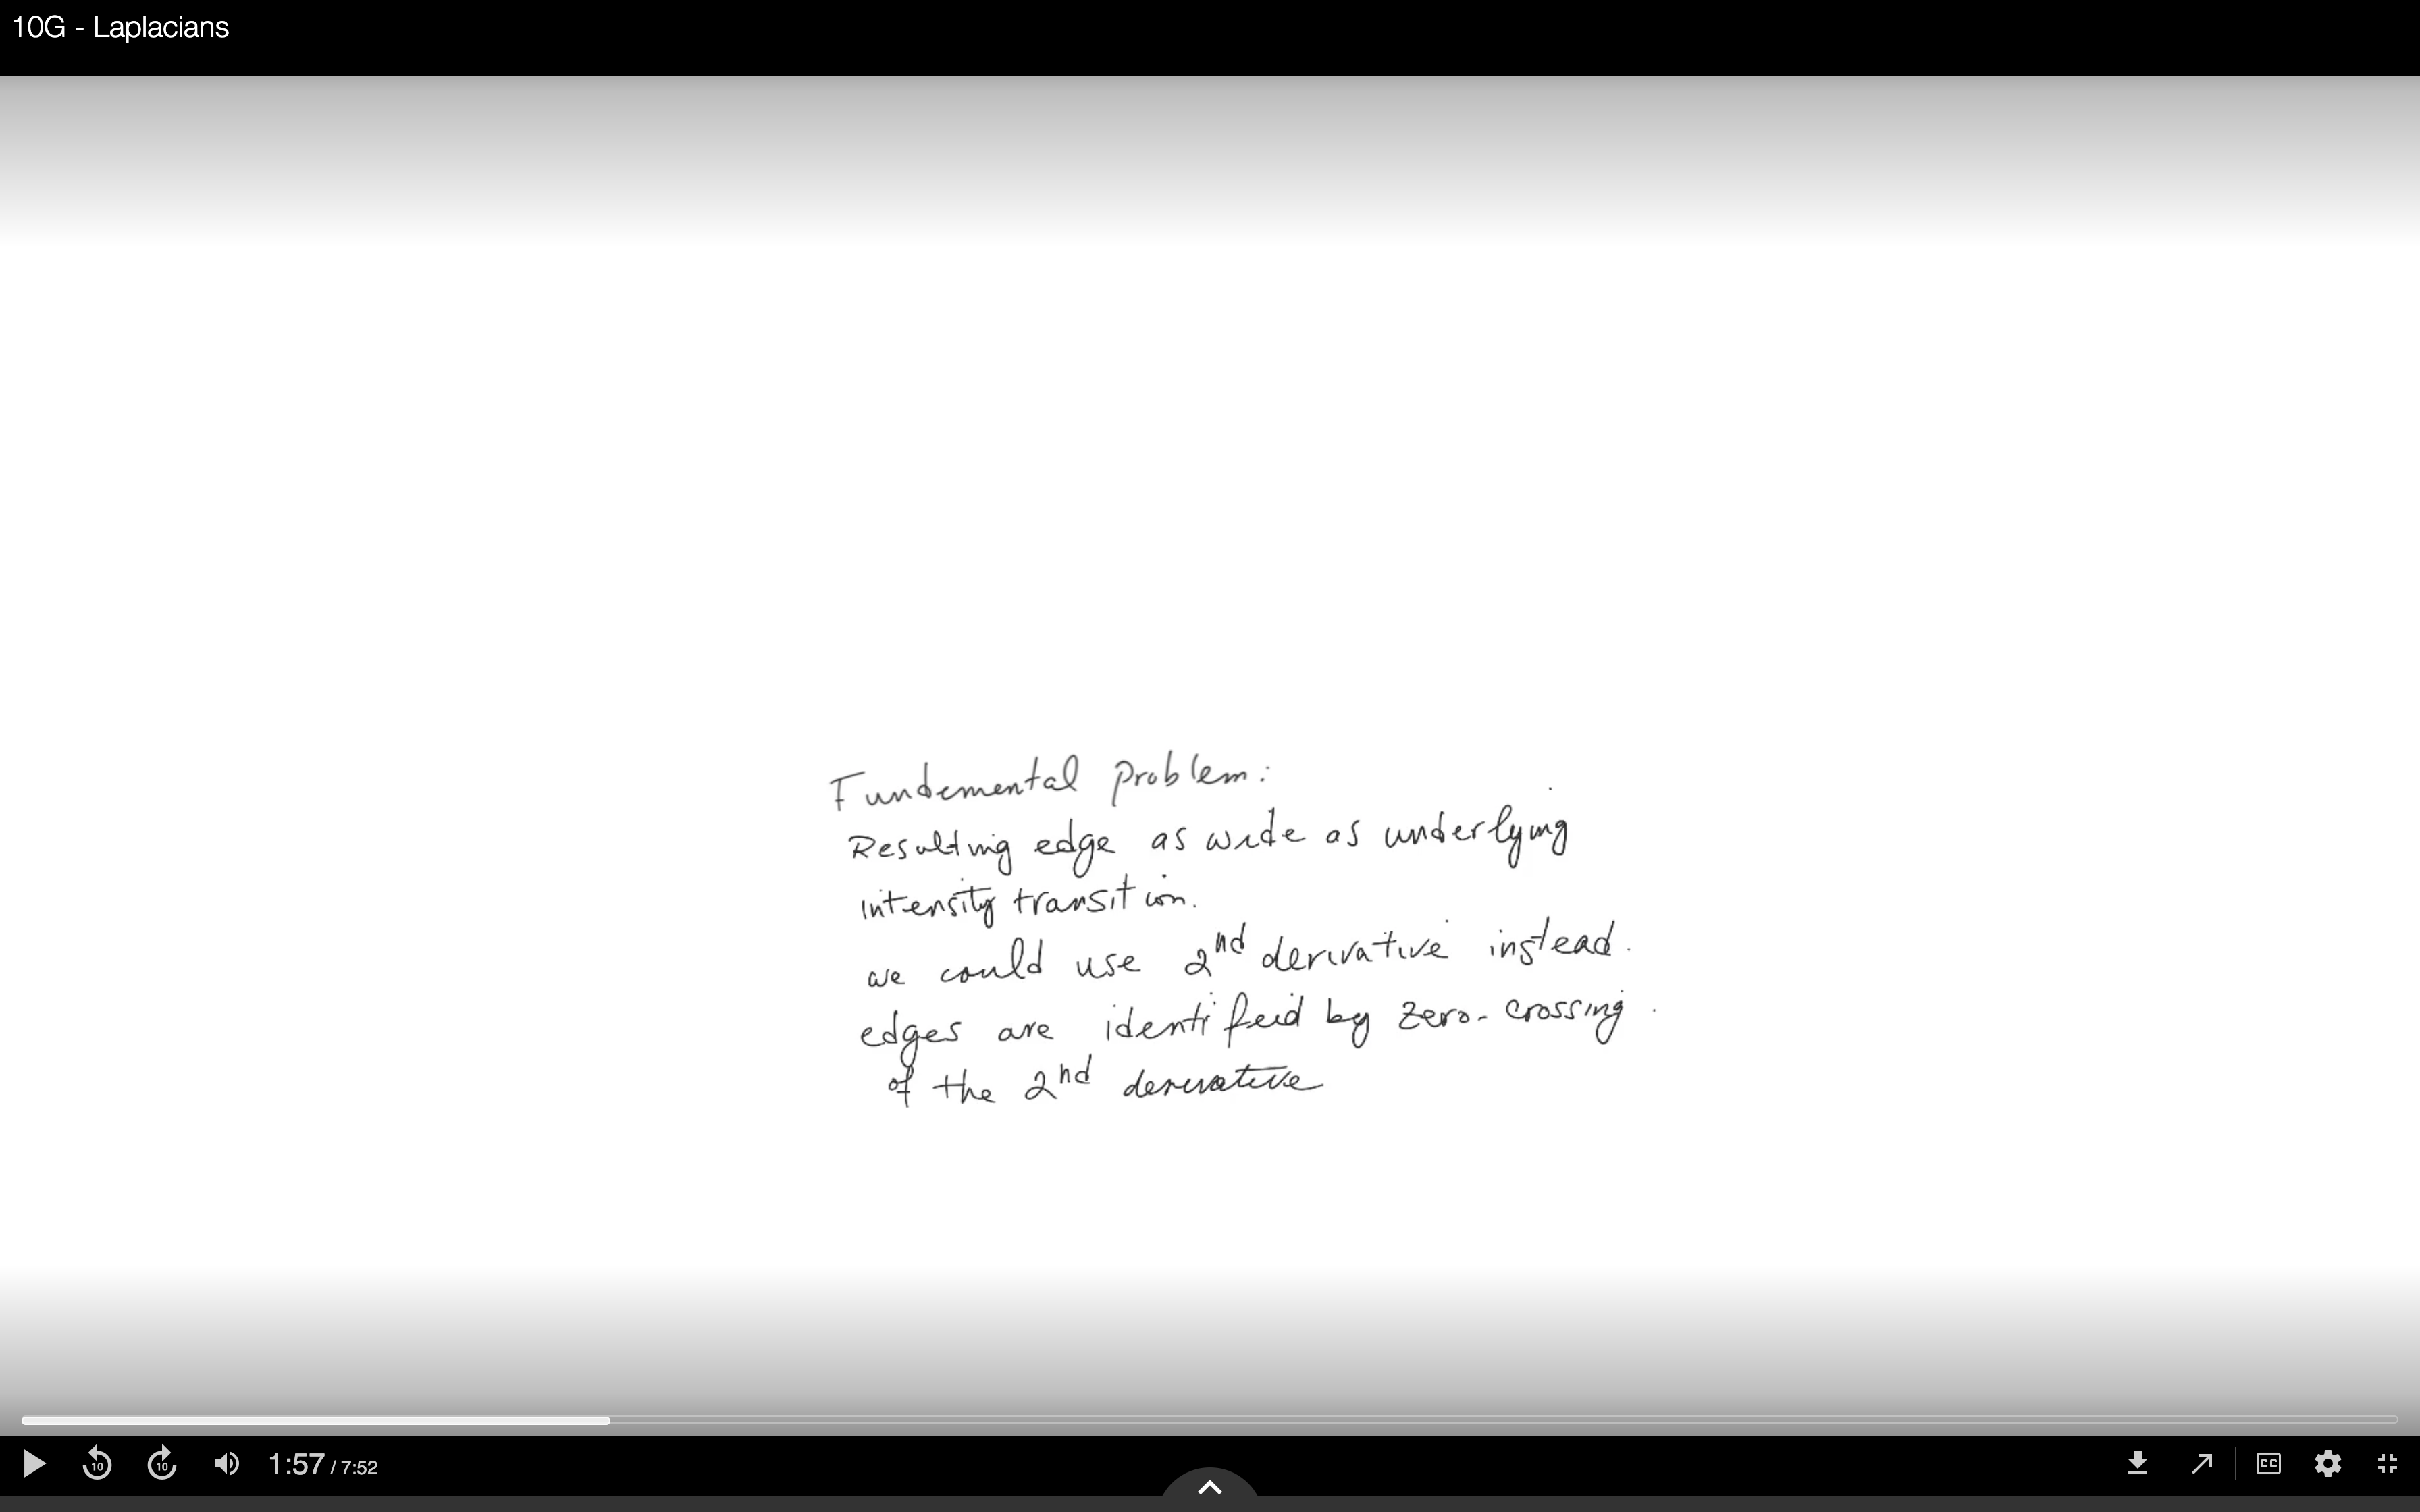 10G - Laplacians
Fundemental problem:
Resulting edge as wide as underlying
intensity transition.
we could use 2nd derivative instead.
edges are identifeid by zero-crossing.
of the 2nd derivative
10 10 1:57 / 7:52 CC